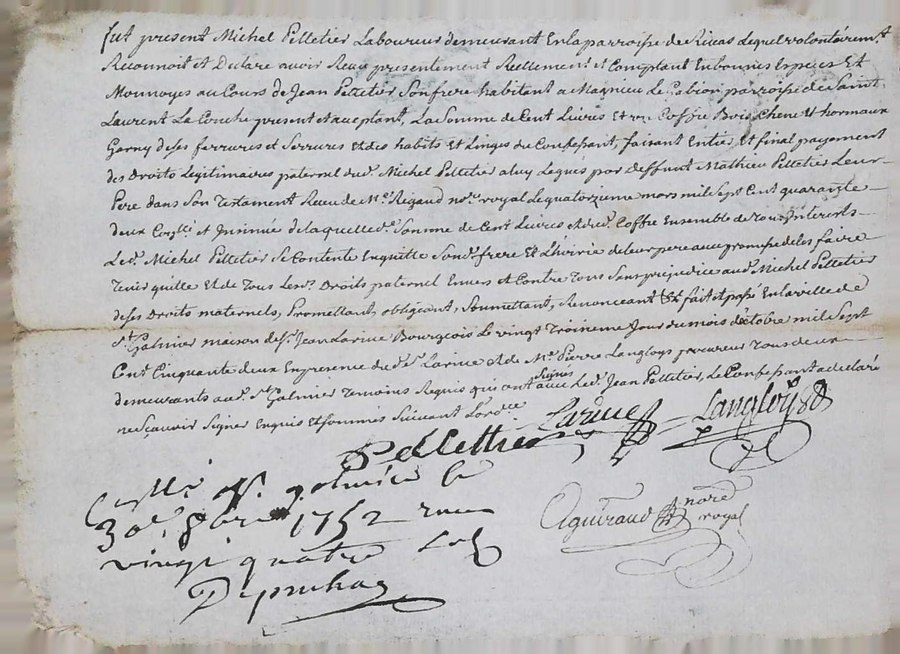 fut present Michel Pelletier Laboureur demeurant En la parroisse de Rivas Lequel volontairemt.
Reconnoit et Declare avoir Receu presentement Reellement et Comptant En bonnes Especes Et
Monnoyes au Cours de Jean Pelletier Son frere habitent a Magnieu Le Gabion parroisse de Saint
Laurent La Conche present et aceptant, La Somme de Cent Livres Et un Coffre Bois Chene Et hormaux
Garny de ses ferrures et Serrures Et des habits Et Linges du Confessant, faisant Entier Et final payement
des Droits Legitimaires paternel dud. Michel Pelletier a luy Legués par deffunt Mathieu Pelletier Leur
Pere dans Son Testament Receu de Me. Rigaud nore. royal Le quatorzieme mars mil Sept Cent quarante
deux Conttlé. et Insinué de laquelle de. Somme de Cent Livres Et dud. Coffre Ensemble de tous Interests
Led. Michel Pelletier Se Contente En quitte Sond. frere Et L'hoirie de leur pere avec promesse de les faire
Tenir quitte Et de Tous Lesd. Droits paternel Envers et Contre Tous Sans prejudice aud. Michel Pelletier
de Ses Droits maternels, Promettant, obligeant, Soumettant, Renonceant &t. fait et passé En la ville de
St. Galmier maison de Sr. Jean Larive Bourgeois Le vingt Troizieme Jour du mois d'octobre mil Sept
Cent Cinquante deux En presence dud. Sr. Larive et de Me. Pierre Langloys procureur Tous deux
demeurants aud. St. Galmier Temoins Requis qui ont Signés avec Led. Jean Pelletier, Le Confessant a declaré
ne Sçavoir Signer Enquis et Sommés Suivant Lordce.
Pellettier Larive Langloys
Conttlé a St. galmier le
30e. 8bre 1752 receu
vingt quatre sols
Aguiraud nore royal